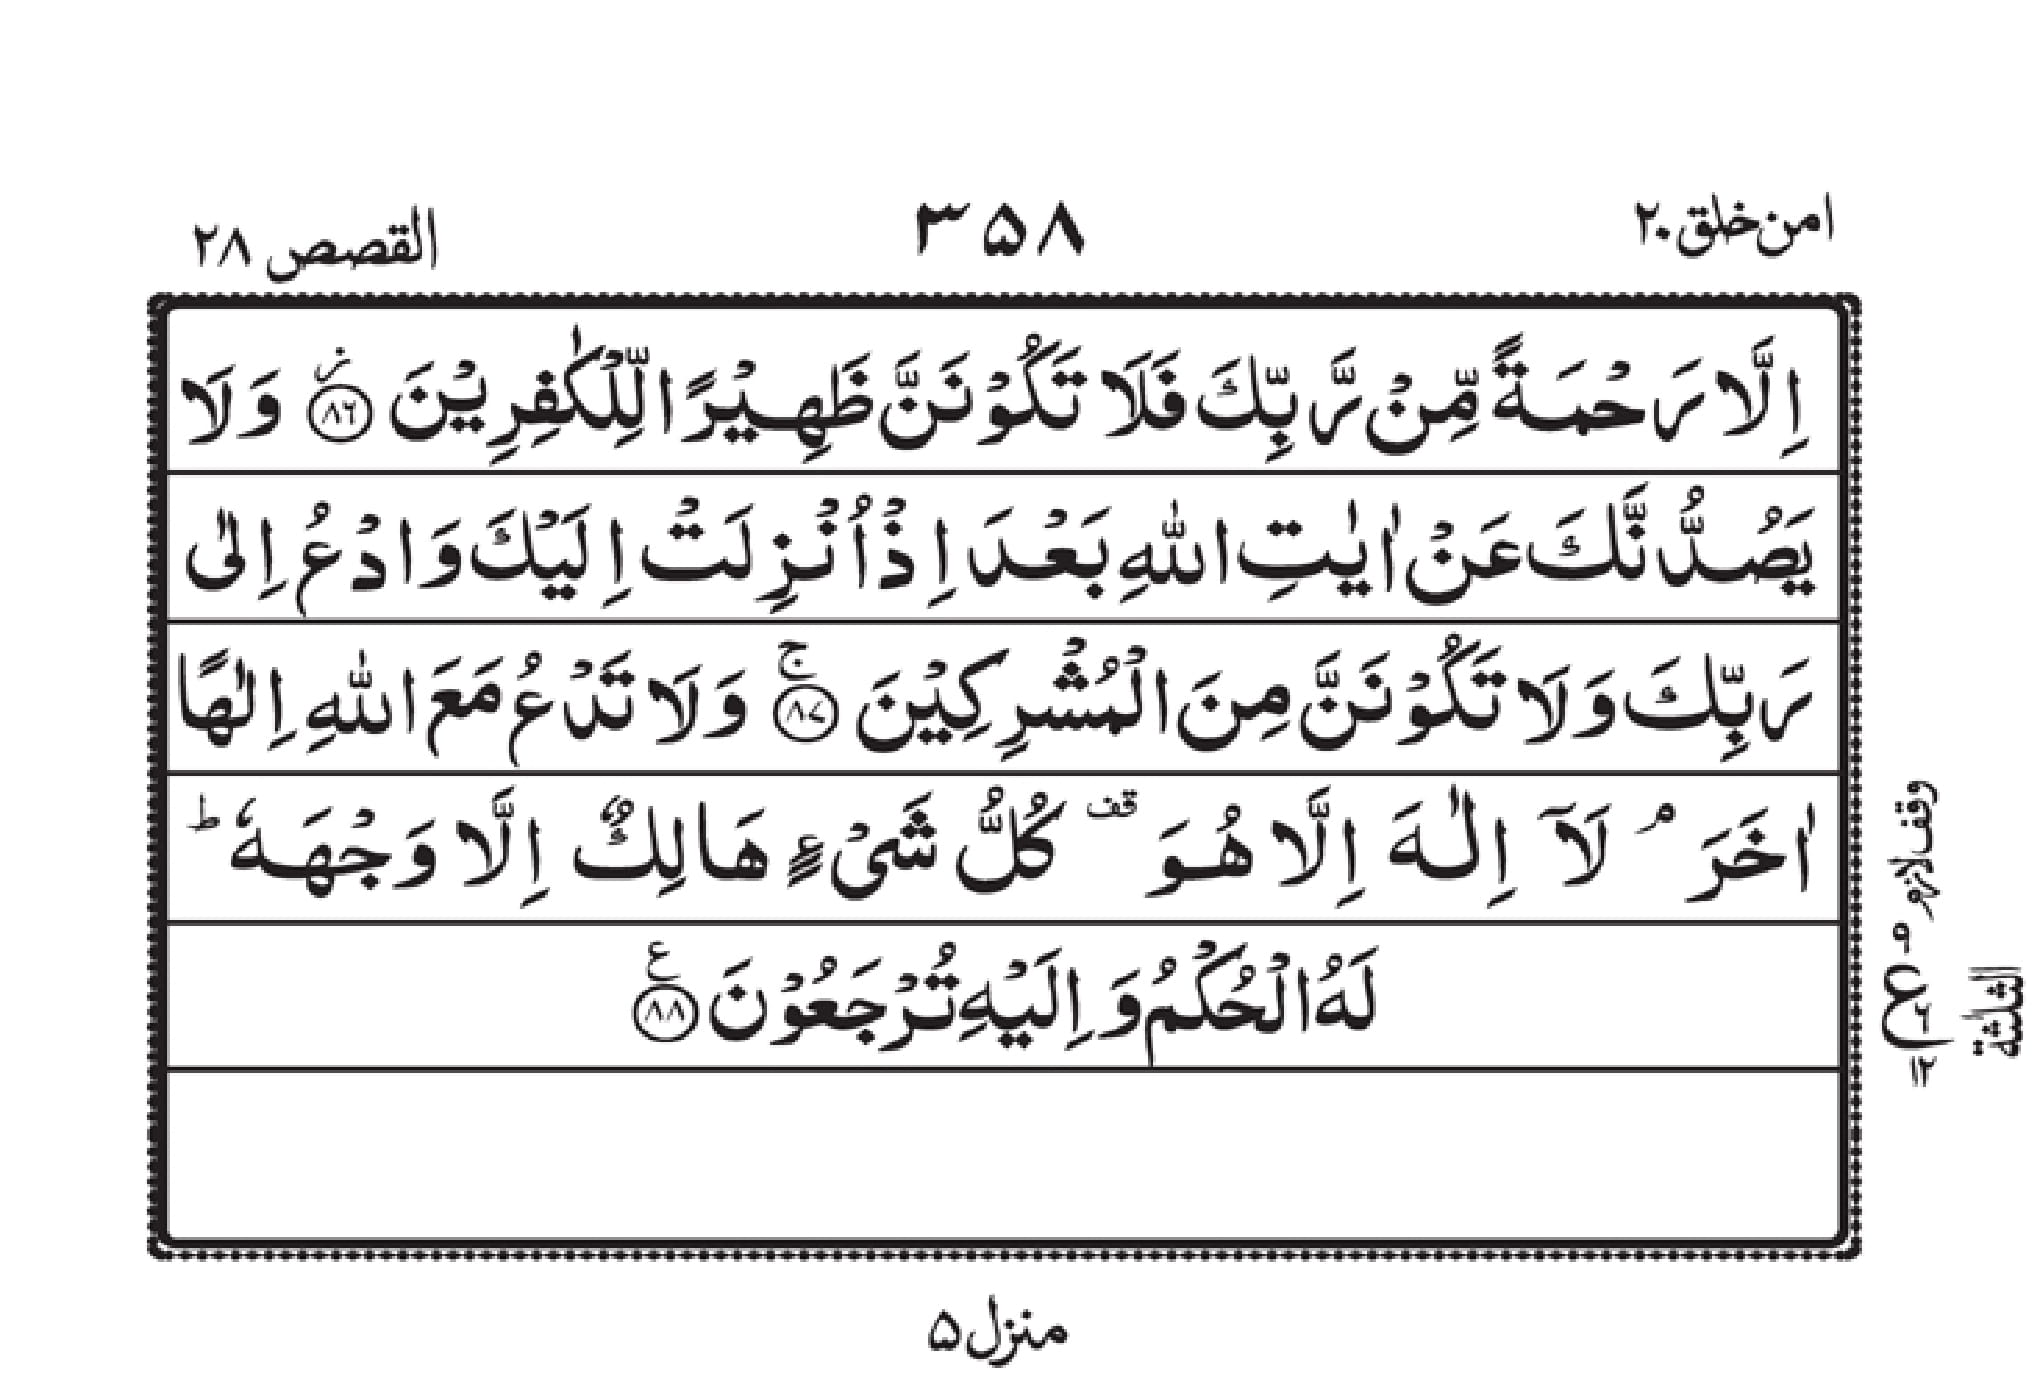 امن خلق ۲۰
۳۵۸
القصص ۲۸
اِلَّا رَحْمَةً مِّنْ رَّبِّكَ فَلَا تَكُوْنَنَّ ظَهِيْرًا لِّلْكٰفِرِيْنَ ز ۸۶ وَلَا
يَصُدُّنَّكَ عَنْ اٰيٰتِ اللّٰهِ بَعْدَ اِذْ اُنْزِلَتْ اِلَيْكَ وَادْعُ اِلٰى
رَبِّكَ وَلَا تَكُوْنَنَّ مِنَ الْمُشْرِكِيْنَ ج ۸۷ وَلَا تَدْعُ مَعَ اللّٰهِ اِلٰهًا
اٰخَرَ ۘ لَآ اِلٰهَ اِلَّا هُوَ قف كُلُّ شَىْءٍ هَالِكٌ اِلَّا وَجْهَهٗ ط
لَهُ الْحُكْمُ وَ اِلَيْهِ تُرْجَعُوْنَ ع ۸۸
وقف لازم
ع
۱۲
الثلثة
منزل ۵